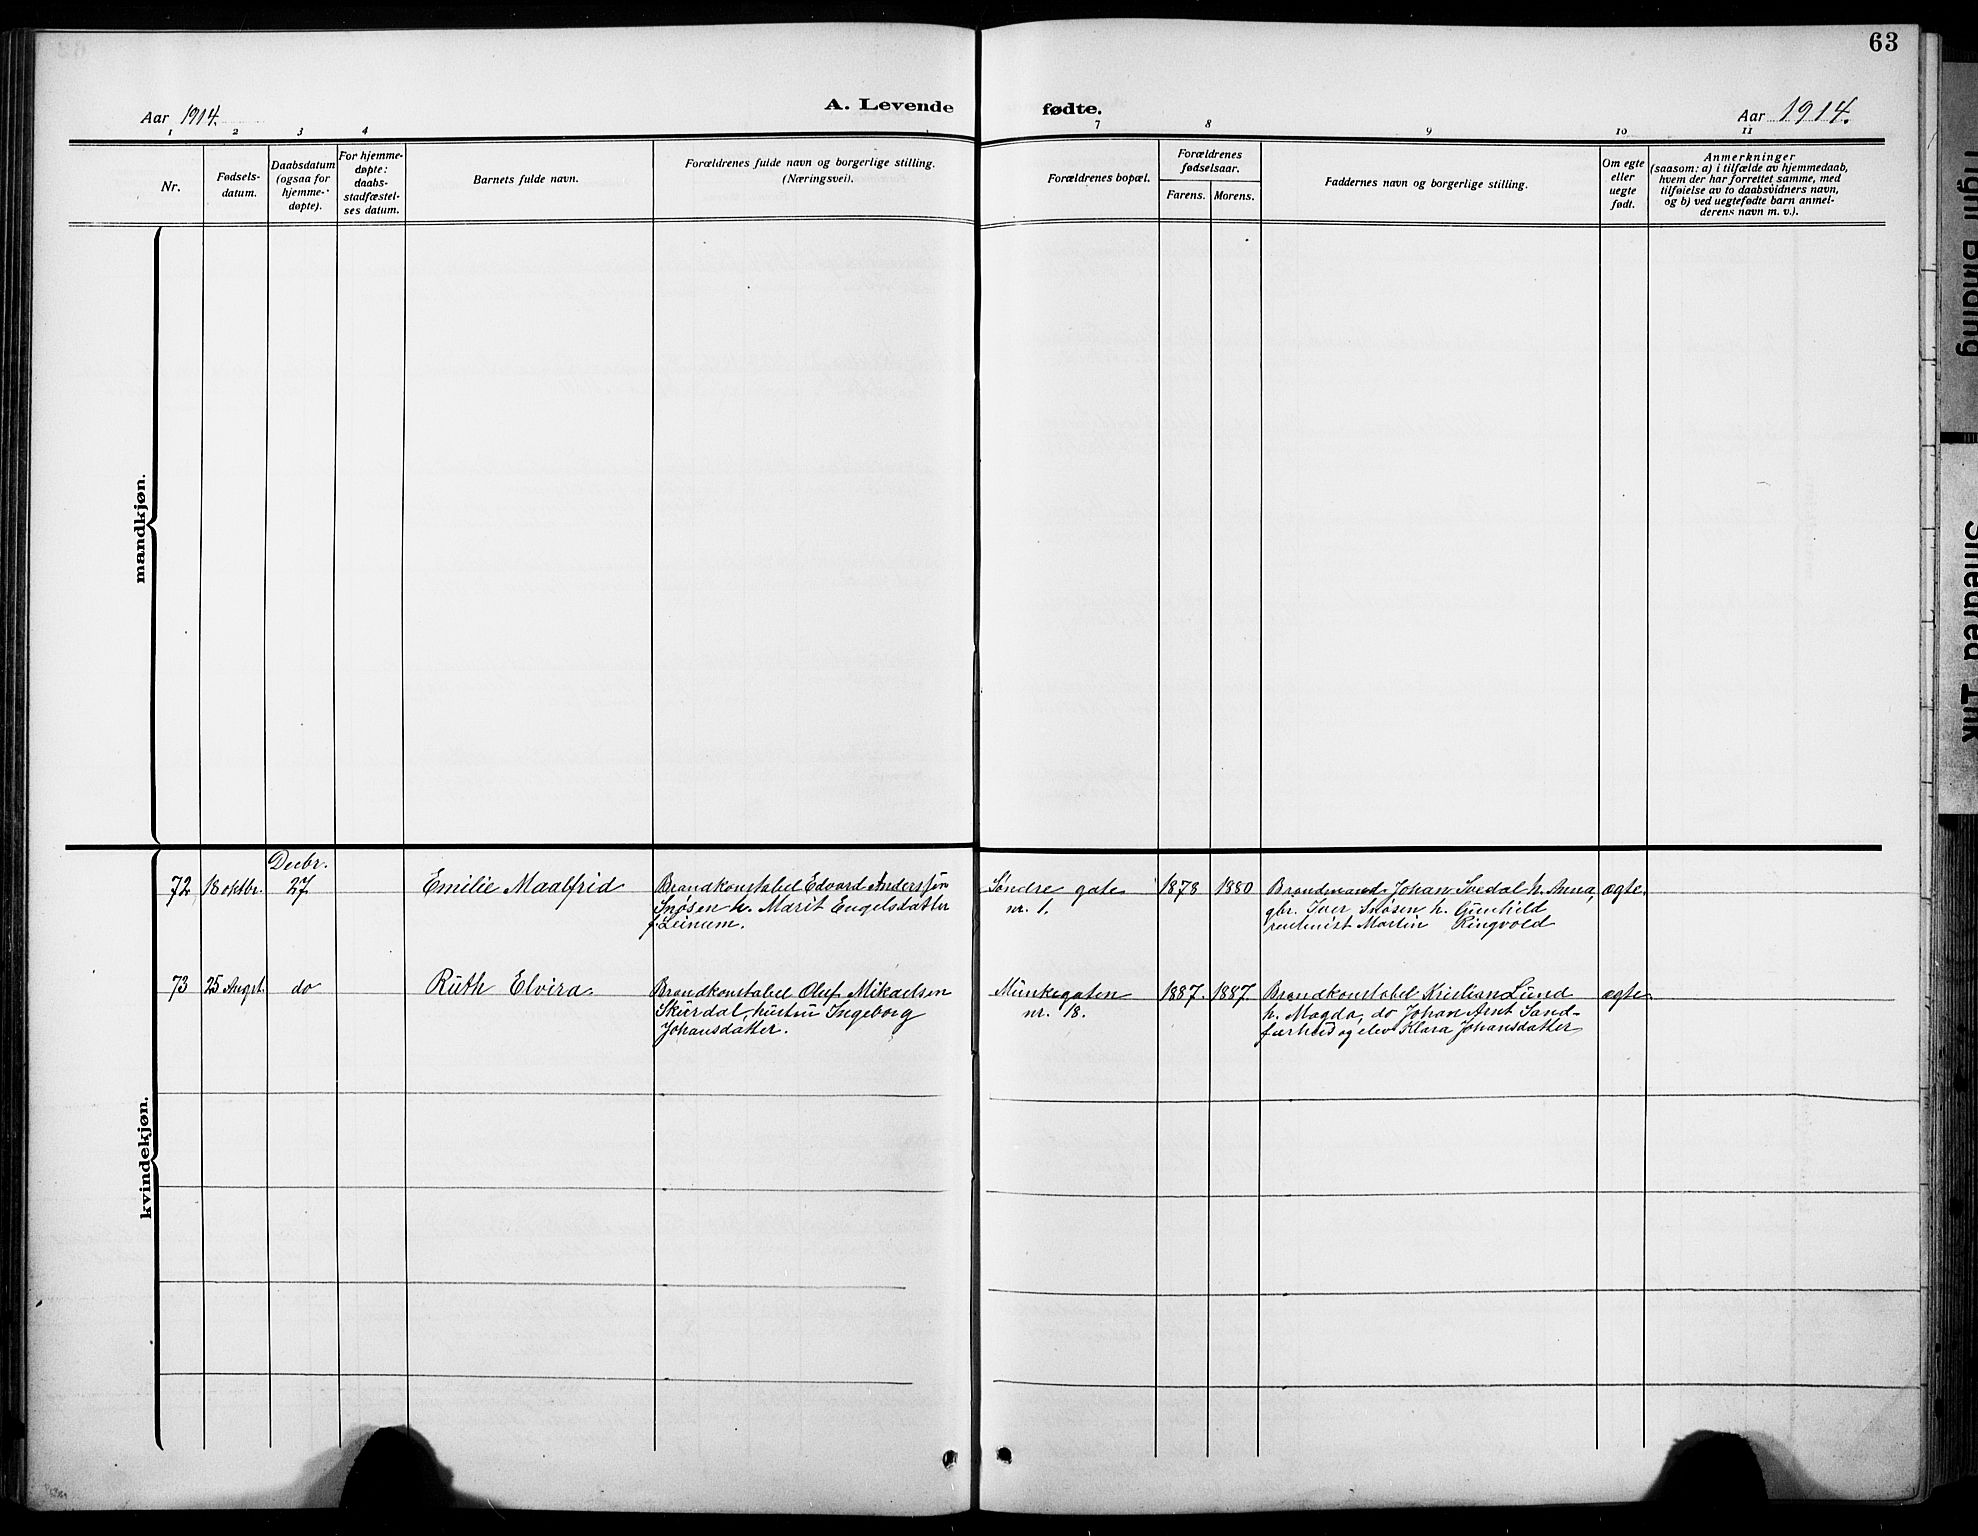 63
Aar 1914.
A. Levende fødte.
Aar 1914.
1 2 3 4 7 8 9 10 11
Nr.
Fødsels-
datum.
Daabsdatum
(ogsaa for
hjemme-
døpte).
For hjemme-
døpte:
daabs-
stadfæstel-
ses datum.
Barnets fulde navn.
Forældrenes fulde navn og borgerlige stilling.
(Næringsvei).
Forældrenes bopæl.
Forældrenes
fødselsaar.
Farens. Morens.
Faddernes navn og borgerlige stilling.
Om egte
eller
uegte
født.
Anmerkninger
(saasom: a) i tilfælde av hjemmedaab,
hvem der har forrettet samme, med
tilføielse av to daabsvidners navn,
og b) ved uegtefødte barn anmel-
derens navn m. v.).
mandkjøn.
kvindekjøn.
72
18 oktbr.
Decbr.
27
Emilie Maalfrid
Brandkonstabel Edvard Anderssøn
Snøsen h. Marit Engelsdatter
f. Leinum.
Søndre gate
nr. 1.
1878
1880
Brandmand Johan Svedal h. Anna,
gbr. Iver Snøsen h. Gunhild
Martin Ringvold
ægte.
73
25 Augst.
do
Ruth Elvira.
Brandkonstabel Oluf Mikaelsen
Skurdal, hustru Ingeborg
Johansdatter.
Munkegaten
nr. 18.
1887.
1887.
Brandkonstabel Kristian Lund
h. Magda, do Johan Arnt Sand-
færhus og elev Klara Johansdatter
ægte
Tight Binding
Smeared Ink